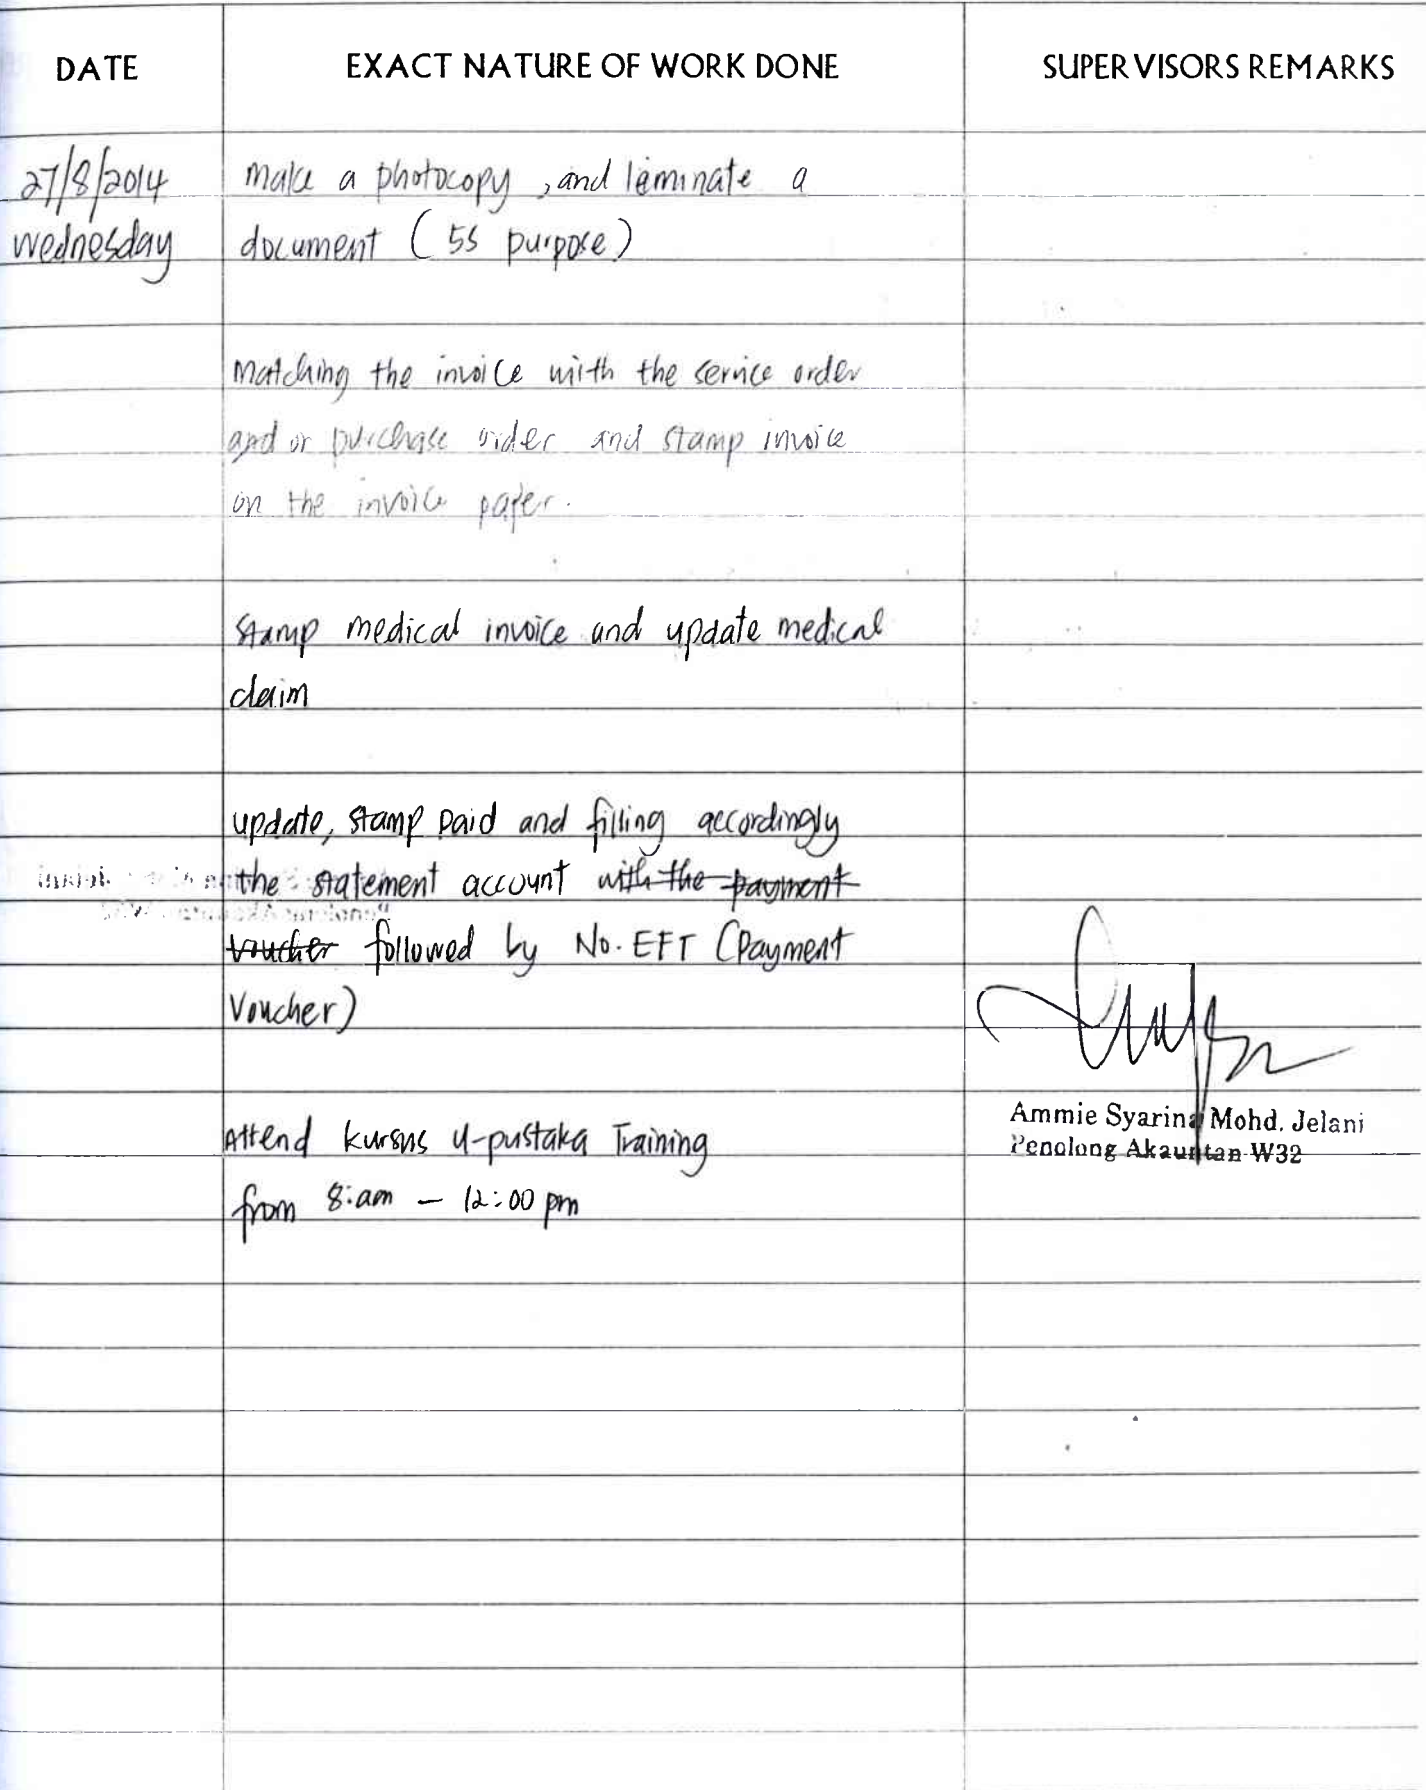 DATE EXACT NATURE OF WORK DONE SUPERVISORS REMARKS
27/8/2014 make a photocopy, and laminate a
wednesday document (5S purpose)
Matching the invoice with the service order
and or purchase order and stamp invoice
on the invoice paper.
Stamp medical invoice and update medical
claim
update, stamp paid and filling accordingly
the statement account with the payment
voucher followed by No. EFT (Payment
Voucher)
Ammie Syarina Mohd. Jelani
Penolong Akauntan W32
Attend kursus u-pustaka Training
from 8:am – 12:00 pm